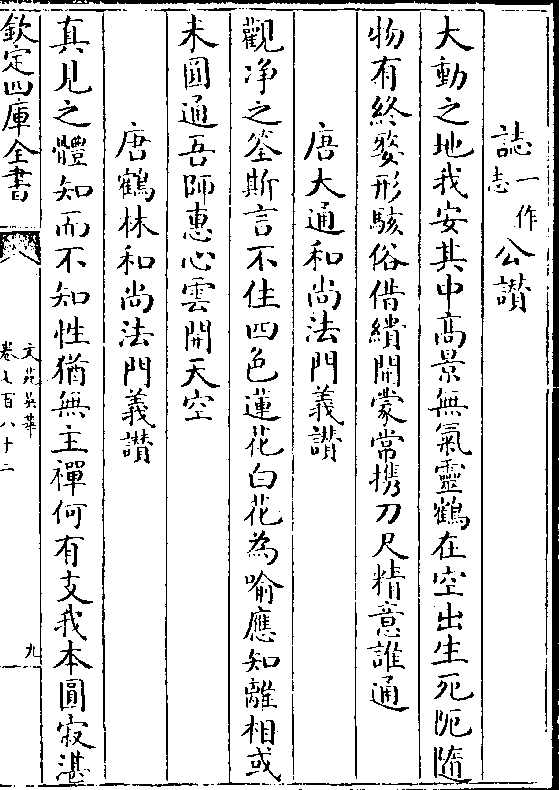 誌一作志公讃
大動之地我安其中高景無氣靈鶴在空出生死阨隨
物有終嫠形駭俗借繢開蒙常攜刀尺精意誰通
唐大通和尚法門義讃
觀净之筌斯言不住四色蓮花白花為喻應知離相或
未圓通吾師惠心雲開天空
唐鶴林和尚法門義讃
真見之體知而不知性猶無主禪何有支我本圓寂湛
欽定四庫全書
文苑英華
卷七百八十二
九